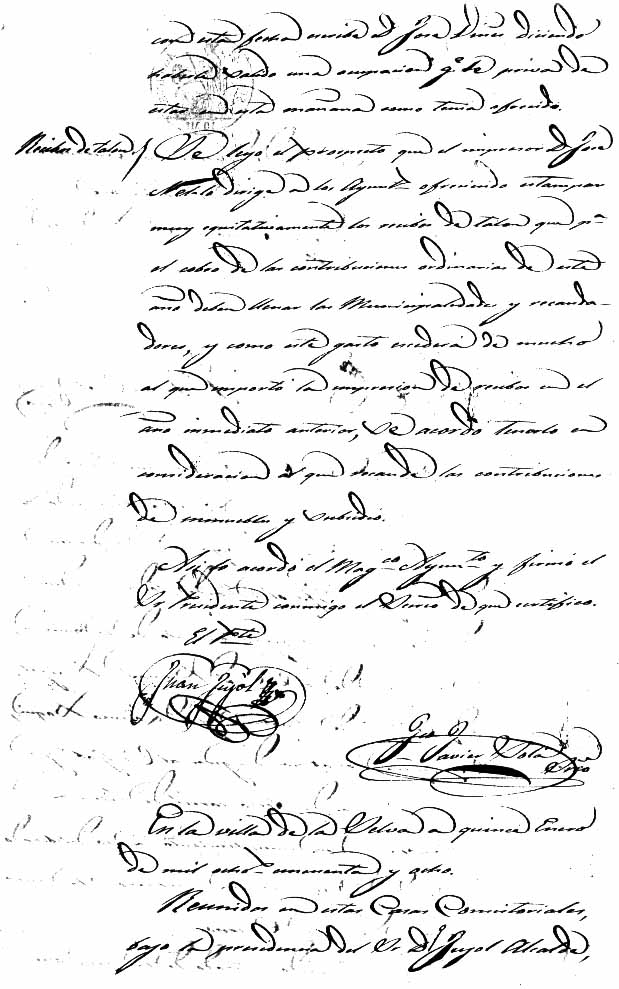 con esta fecha escribe D. José diciendo
haberle salido una ocupacion q.e le priva de
estar en esta mañana como tenia ofrecido.
Recibos de talon
Se leyó el prospecto que el impresor D. José
dirige a los Ayunt.s ofreciendo estampar
muy equitativamente los recibos de talon que p.a
el cobro de las contribuciones ordinarias de este
año deben llenar las Municipalidades y recauda-
dores, y como este gasto escederá de mucho
al que importó la impresion de recibos en el
año inmediato anterior, se acordó tenerlo en
consideracion al que recaude las contribuciones
de inmuebles y subsidio.
Asi lo acordó el Mag.co Ayunt.to y firmó el
Sr. Presidente conmigo el Srio de que certifico.
El P.te
Juan Pujol
Fco Javier Solá
Srio
En la villa de la Selva a quince Enero
de mil ocho.s cincuenta y ocho.
Reunidos en estas Casas Consistoriales,
bajo la presidencia del Sr. D. J. Pujol Alcalde,